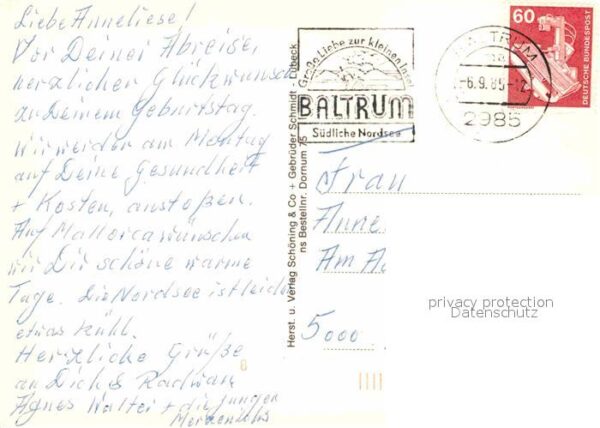 Liebe Anneliese!
Vor Deiner Abreise
herzlicher Glückwunsch
zu Deinem Geburtstag
Wir werden am Montag
auf Deine Gesundheit
+ Kosten, anstoßen.
Auf Mallorca wünschen
wir Dir schöne warme
Tage. Die Nordsee ist leider
etwas kühl.
Herzliche Grüße
an Dich &
Agnes Walter + die jungen
Große Liebe zur kleinen Insel
BALTRUM
Südliche Nordsee
BALTRUM
-6.9.85-12
2985
60
DEUTSCHE BUNDESPOST
Herst. u. Verlag Schöning & Co + Gebrüder Schmidt Lübeck
ns Bestellnr. Dornum 75
Frau
Anne
Am
5000
privacy protection
Datenschutz